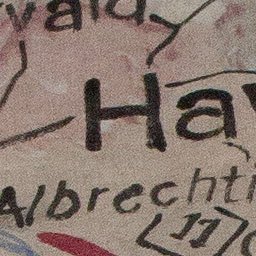 vald
Ha
Albrechti
11